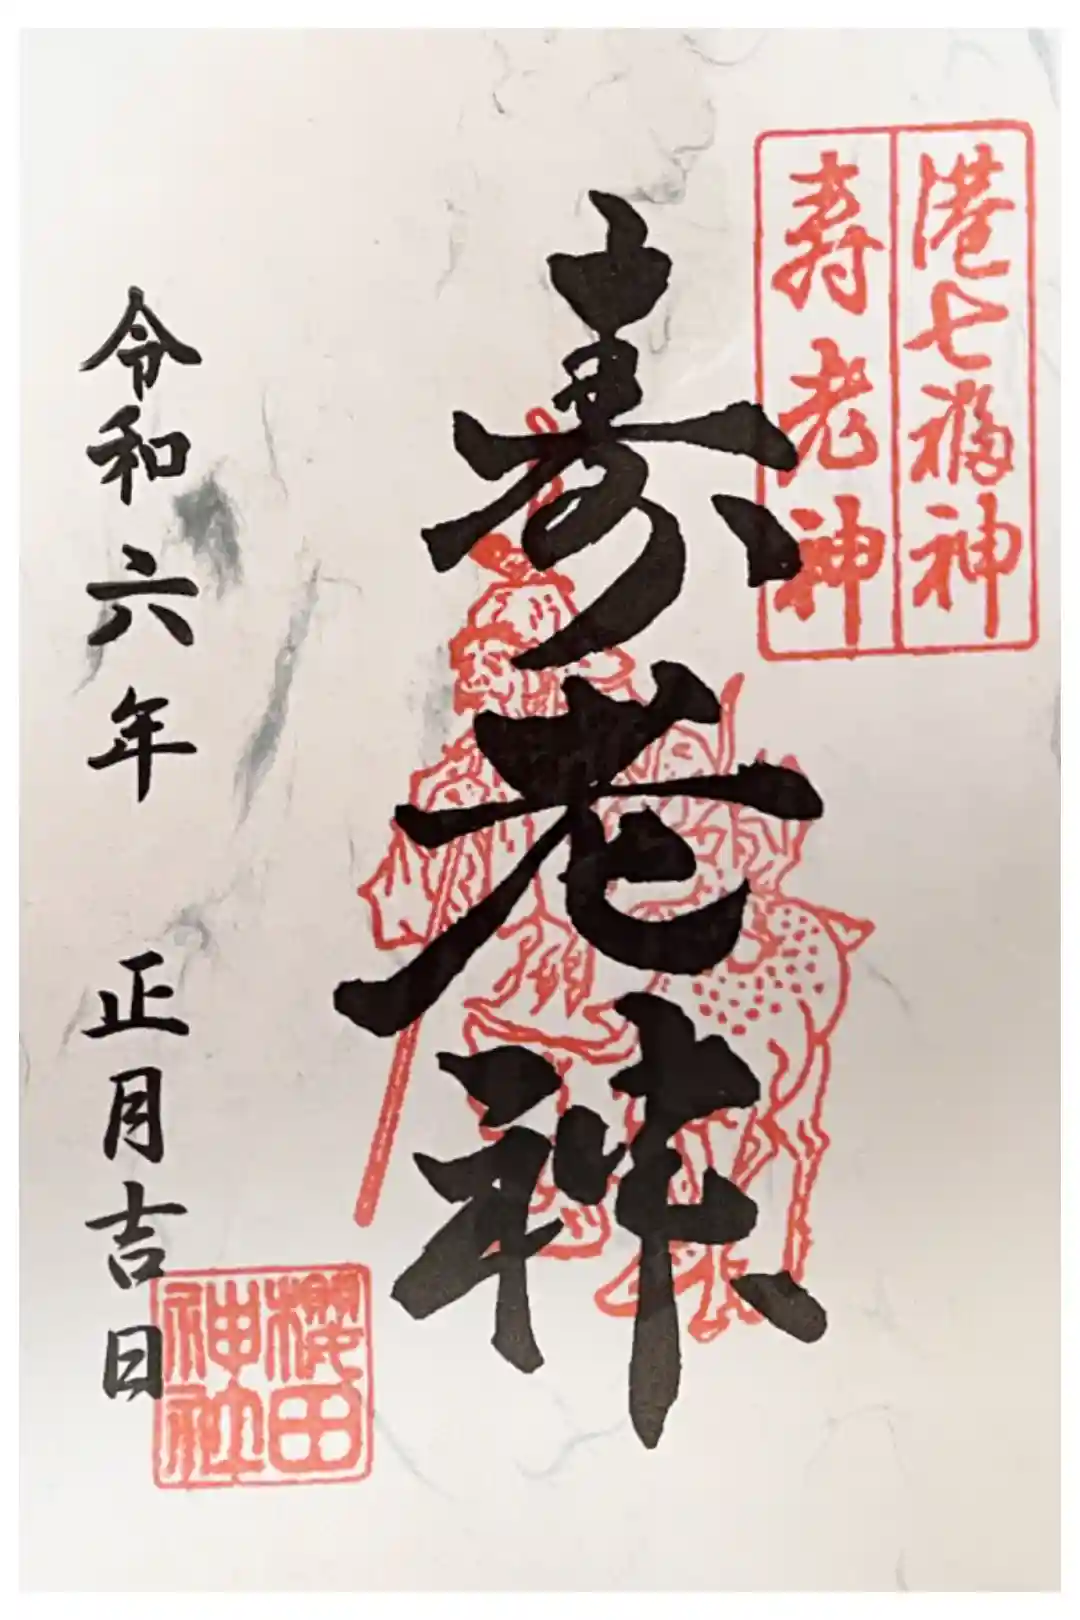 港七福神
寿老神
寿老神
令和六年 正月吉日
櫻田
神社